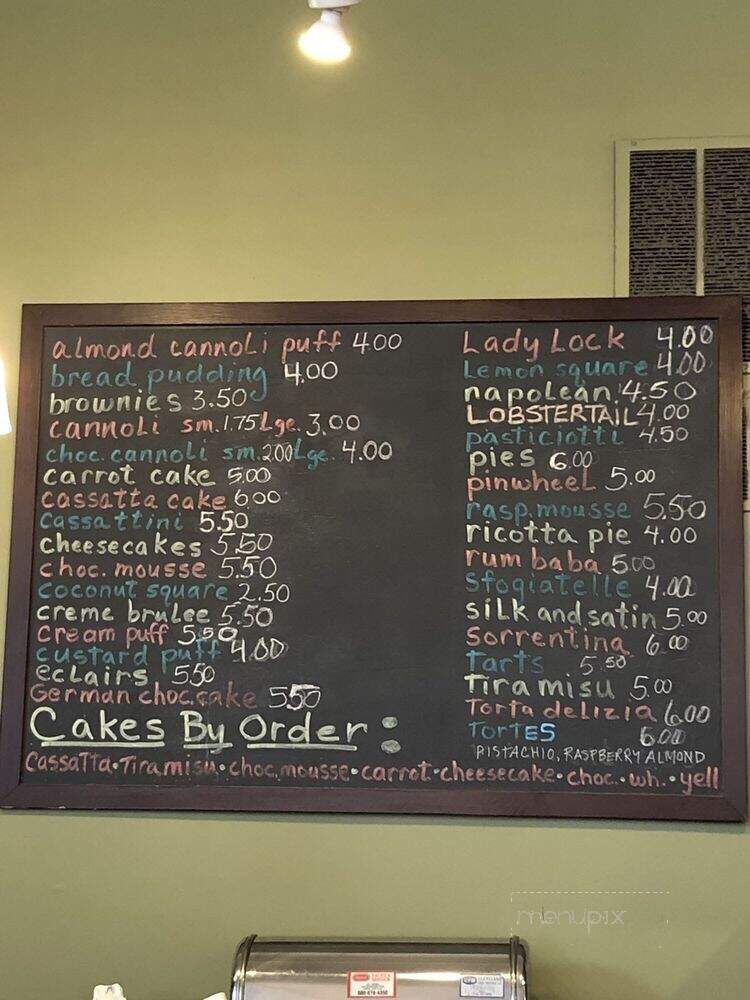 almond cannoli puff 4.00
bread pudding 4.00
brownies 3.50
cannoli sm. 1.75 Lge. 3.00
choc. cannoli sm. 2.00 Lge. 4.00
carrot cake 5.00
cassatta cake 6.00
cassattini 5.50
cheesecakes 5.50
choc. mousse 5.50
coconut square 2.50
creme brulee 5.50
cream puff 5.50
custard puff 4.00
eclairs 5.50
German choc. cake 5.50
Lady Lock 4.00
Lemon square 4.00
napolean 4.50
LOBSTERTAIL 4.00
pasticiotti 4.50
pies 6.00
pinwheel 5.00
rasp. mousse 5.50
ricotta pie 4.00
rum baba 5.00
Sfogiatelle 4.00
silk and satin 5.00
Sorrentina 6.00
Tarts 5.50
Tiramisu 5.00
Torta delizia 6.00
TorTES 6.00
PISTACHIO, RASPBERRY ALMOND
Cakes By Order:
Cassatta • Tiramisu • choc. mousse • carrot • cheesecake • choc. • wh. • yell
menupix